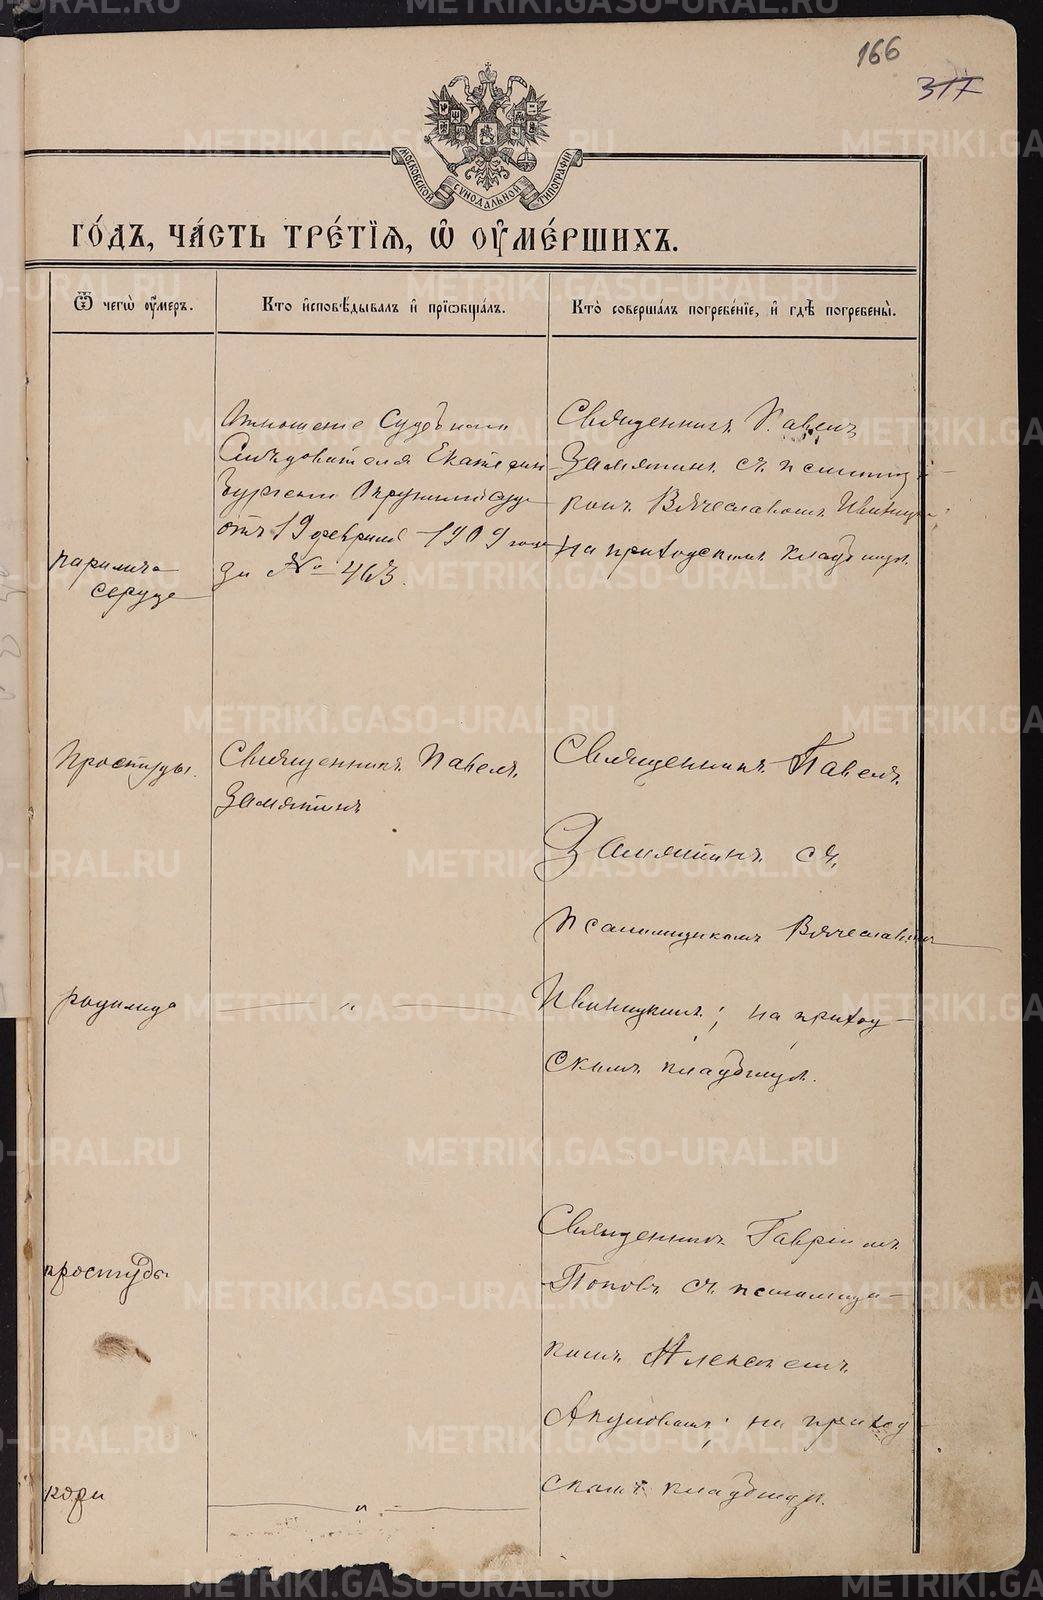 166
317
МОСКОВСКОЙ СѴНОДАЛЬНОЙ ТИПОГРАФІИ
ГО́ДЪ, ЧА́СТЬ ТРЕ́ТІѦ, Ѡ҆ ОУ҆МЕ́РШИХЪ.
Ѿ чегѡ̀ оу҆́меръ.
Кто̀ и҆сповѣ́дывалъ и҆ прїѡбща́лъ.
Кто̀ соверша́лъ погребе́нїе, и҆ гдѣ̀ погребены̀.
паралича
сердца
Отношеніе Судебнаго
Слѣдователя Екатерин
бургскаго Окружнаго суда
отъ 19 февраля 1909 года
за № 463.
Священникъ Павелъ
Замятинъ съ псаломщи-
комъ Вячеславомъ Ивиницкимъ;
на приходскомъ кладбищѣ.
Простуды.
Священникъ Павелъ
Замятинъ
Священникъ Павелъ
Замятинъ съ
псаломщикомъ Вячеславомъ
Ивиницкимъ; на приход-
скомъ кладбищѣ.
родимца
— „ —
простуды
Священникъ Гавріилъ
Поповъ съ псаломщи-
комъ Алексѣемъ
Акуловымъ; на приход-
скомъ кладбищѣ.
кори
— „ —
METRIKI.GASO-URAL.RU